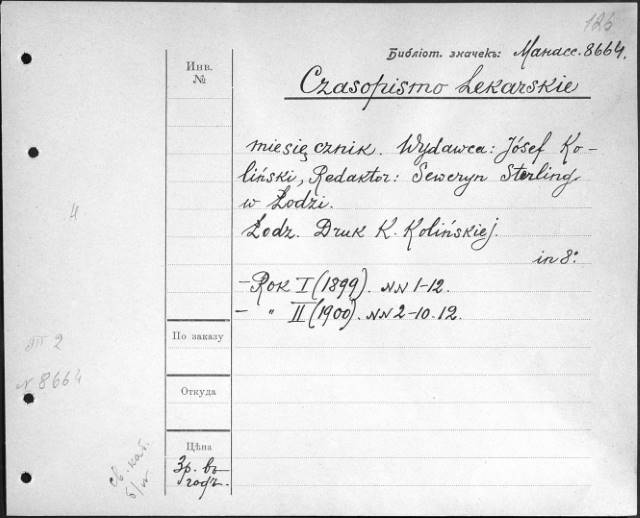 126
Библіот. значекъ: Манасс. 8664.
Инв. №
Czasopismo Lekarskie
miesięcznik. Wydawca: Jósef Ko-
liński, Redaktor: Seweryn Sterling
w Łodzi.
Łodz. Druk K. Kolińskiej.
in 8°.
- Rok I (1899). NN 1-12.
- " II (1900). NN 2-10. 12.
4
По заказу
2
N 8664
Откуда
Цѣна
3р. въ
годъ.
св. каб.
б/н